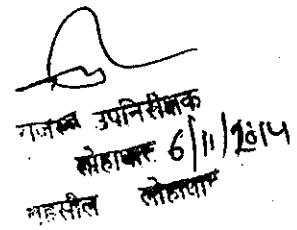 राजस्व उपनिरीक्षक
लोहाघाट 6/11/2014
तहसील लोहाघाट